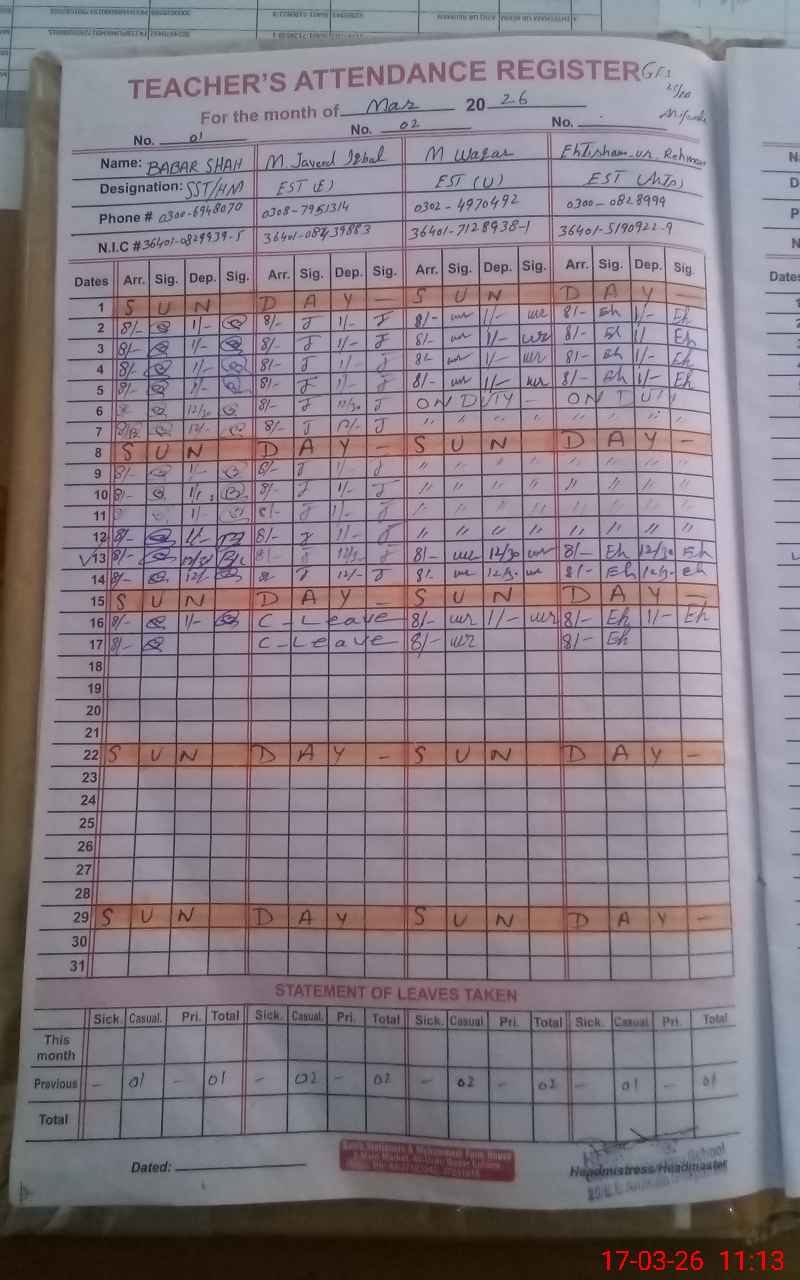 TEACHER'S ATTENDANCE REGISTER
For the month of Mar 2026
No. 01 No. 02 No.
Name: BABAR SHAH M Javed Iqbal M Waqar Ehtisham-ur-Rehman
Designation: SST/HM EST (E) EST (U)  EST
Phone # 0300-6948070 0308-7951314 0302-4970492 0300-0828999
N.I.C # 36401-0829939-5 36401-7128938-1 36401-5190922-9
Dates Arr. Sig. Dep. Sig. Arr. Sig. Dep. Sig. Arr. Sig. Dep. Sig. Arr. Sig. Dep. Sig.
1 S U N D A Y - S U N D A Y -
2 8/- 1/- 8/- J 1/- J 8/- wr 1/- wr 8/- Eh 1/- Eh
3 8/- 1/- 8/- J 1/- J 8/- wr 1/- wr 8/- Eh 1/ Eh
4 8/- 1/- 8/- J 1/- J 8/- wr 1/- wr 8/- Eh 1/- Eh
5 8/- 1/- 8/- J 1/- J 8/- wr 1/- wr 8/- Eh 1/- Eh
6 12/30 8/- J 12/30 J ON DUTY - ON DUTY
7 12/- 8/- J 12/- J " " " " " " " "
8 S U N D A Y - S U N D A Y -
9 8/- 1/- 8/- J 1/- J " " " " " " " "
10 8/- 8/- J 1/- J " " " " " " " "
11 1/- 8/- J 1/- J " " " " " " " "
12 8/- 1/- 8/- J 1/- J " " " " " " " "
13 8/- 8/- J 12/30 J 8/- wr 12/30 wr 8/- Eh 12/30 Eh
14 8/- 12/- J 12/- J 8/- wr 12/30 wr 8/- Eh 12/30 Eh
15 S U N D A Y - S U N D A Y -
16 8/- 1/- C-Leave 8/- wr 1/- wr 8/- Eh 1/- Eh
17 8/- C-Leave 8/- wr 8/- Eh
18
19
20
21
22 S U N D A Y - S U N D A Y -
23
24
25
26
27
28
29 S U N D A Y S U N D A Y -
30
31
STATEMENT OF LEAVES TAKEN
Sick. Casual. Pri. Total Sick. Casual. Pri. Total Sick. Casual. Pri. Total Sick. Casual. Pri. Total
This month
Previous - 01 - 01 - 02 - 02 - 02 - 02 - 01 - 01
Total
Dated:
Headmistress/Headmaster
17-03-26 11:13